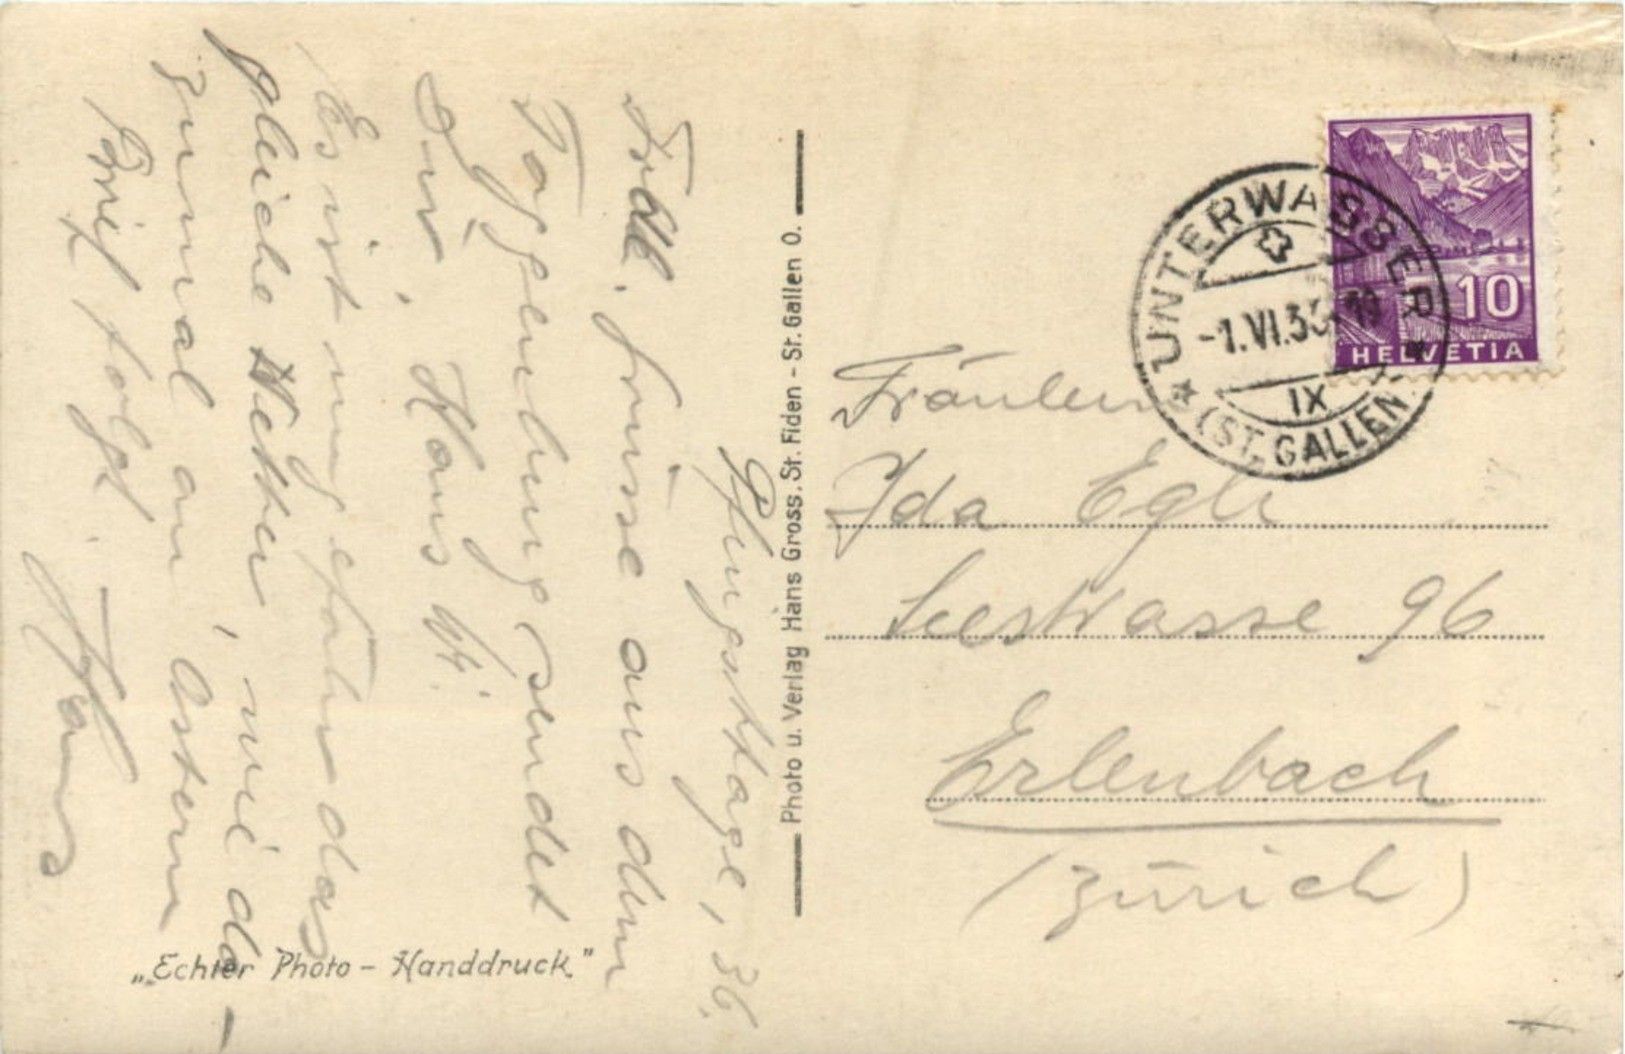 Pfingsttage, 36.
Frdl. Grüsse aus dem
Toggenburg sendet
Dir, Hans
Es ist ungefähr das
gleiche Wetter, wie da-
zumal an Ostern
Brief folgt. Hans
Photo u. Verlag Hans Gross. St. Fiden - St. Gallen O.
„Echter Photo - Handdruck."
UNTERWASSER
-1.VI.36-19
IX
(ST. GALLEN)
10
HELVETIA
Fräulein
Ida Egli
Seestrasse 96
Erlenbach
(Zürich)